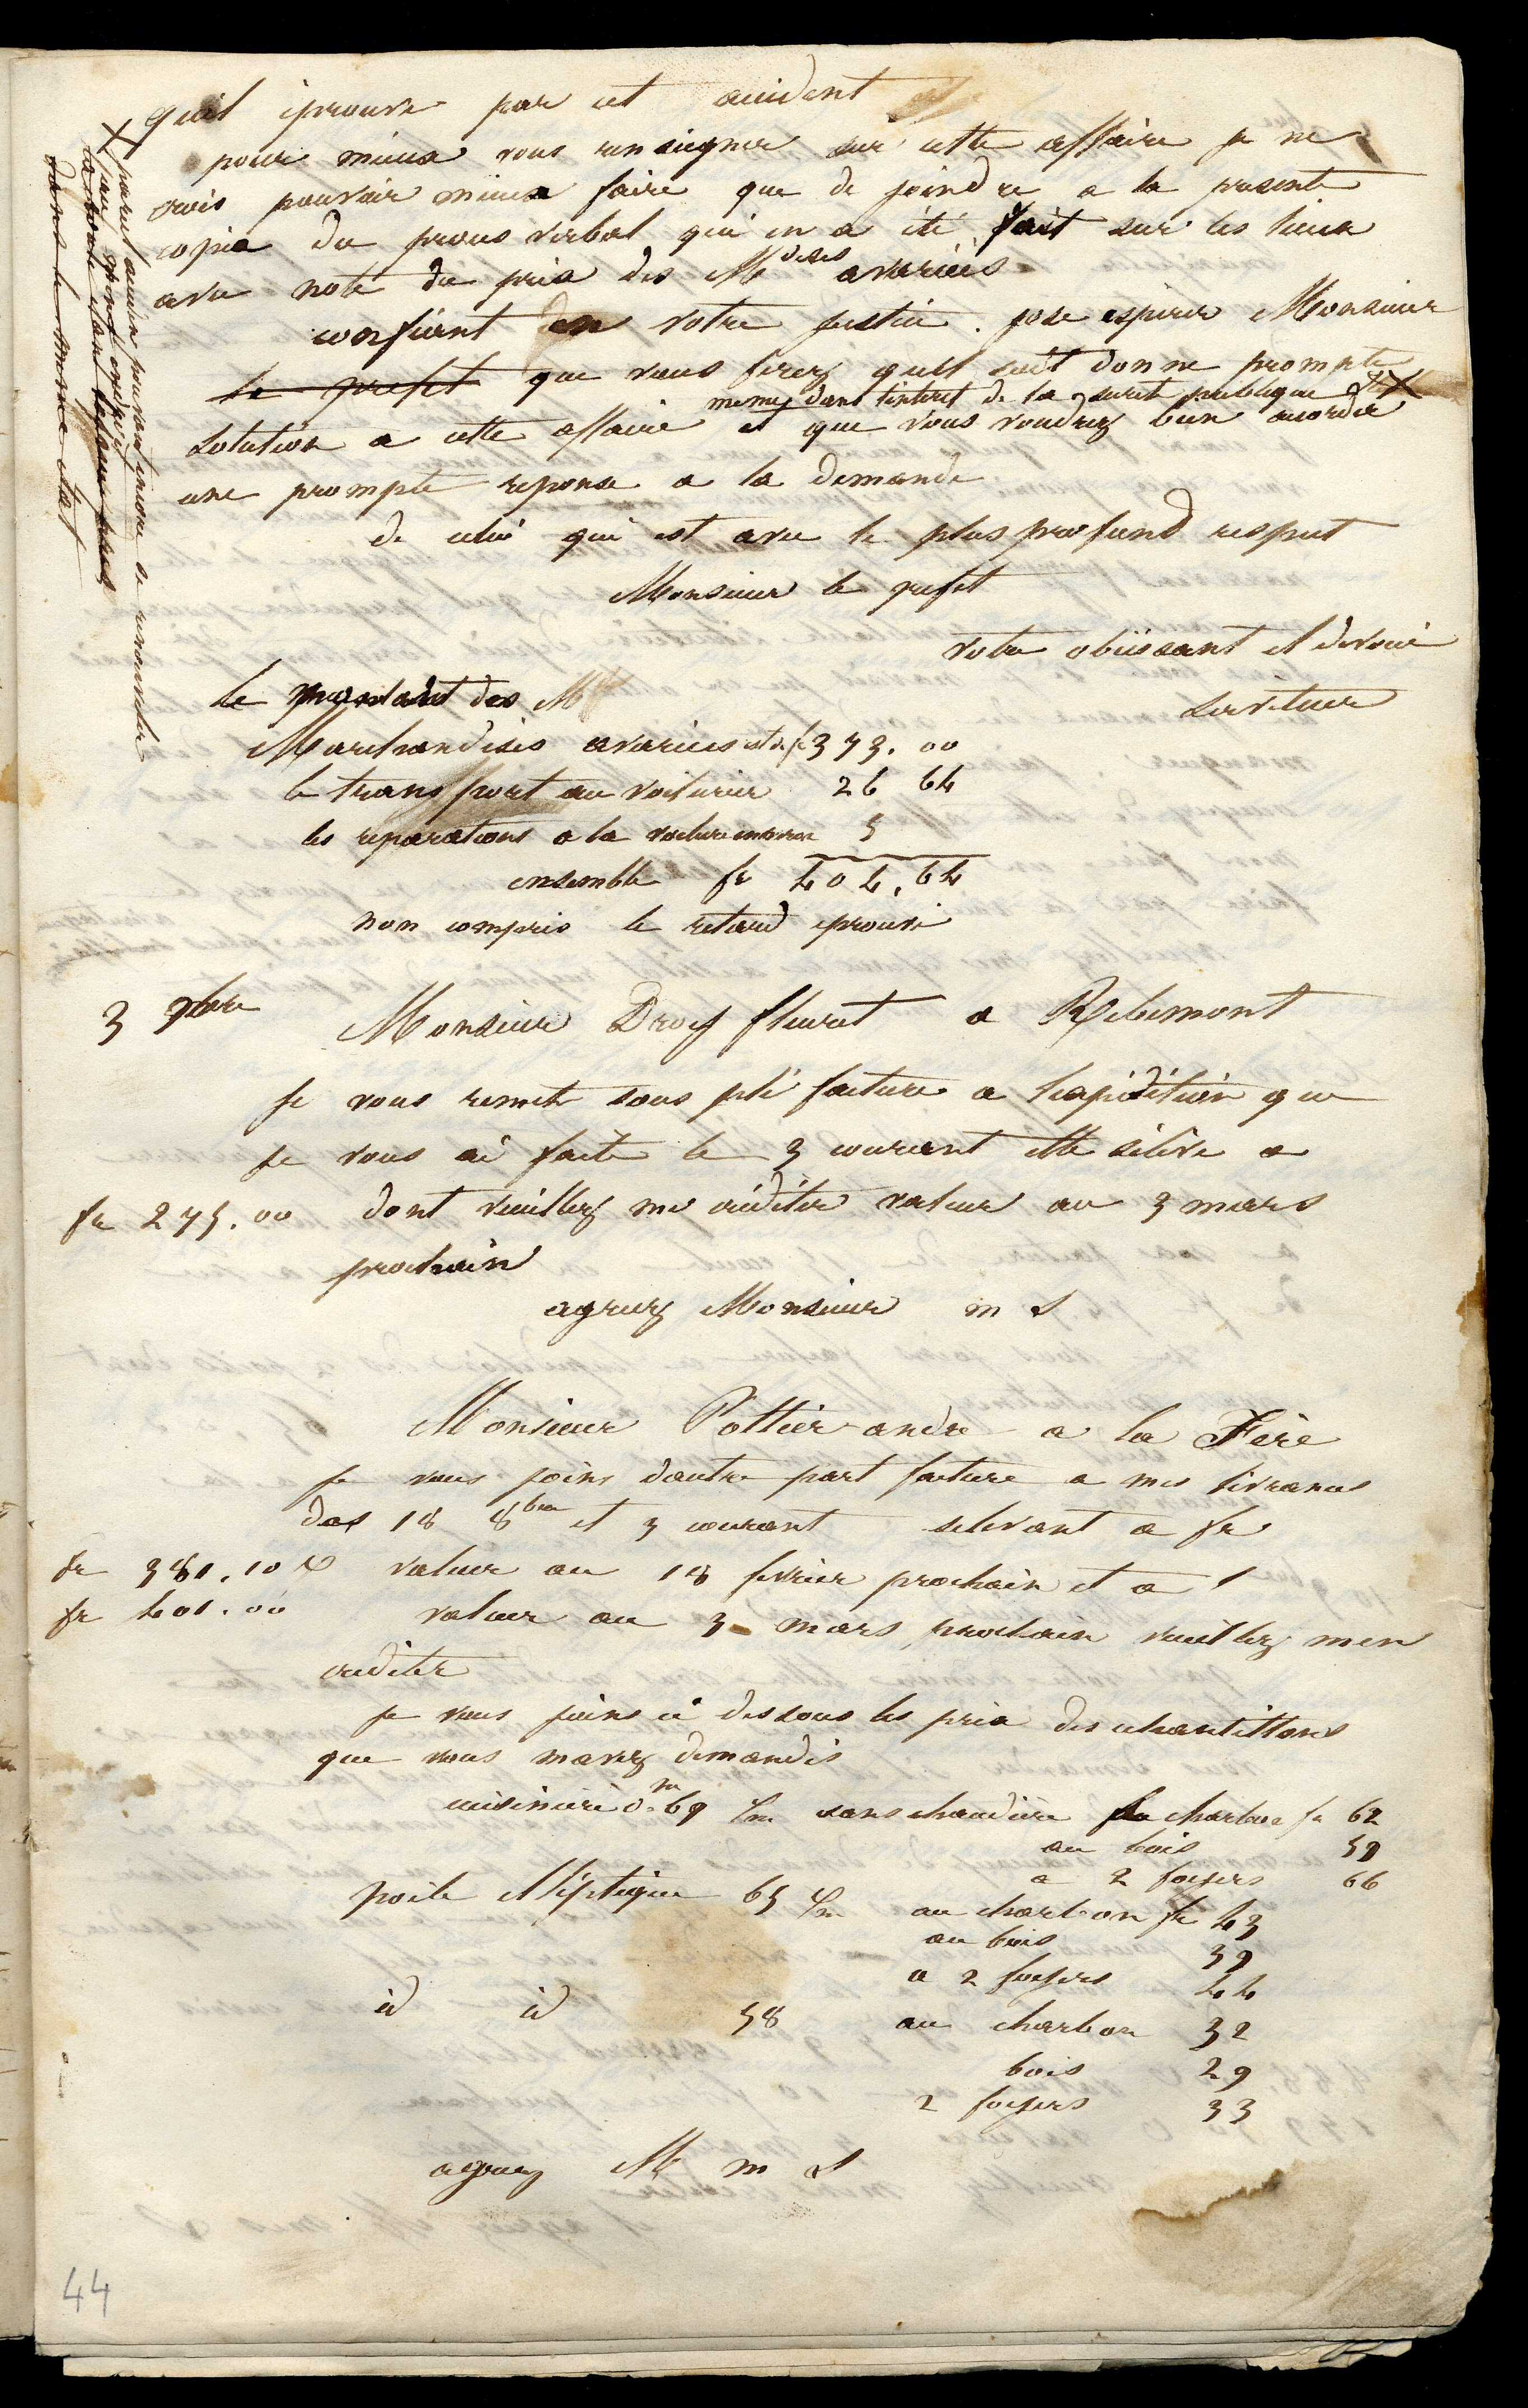 quil eprouve par cet accident
pour mieux vous renseigner sur cette affaire je ne
crois pouvoir mieux faire que de joindre a la presente
copie du proces verbal qui en a été fait sur les lieux
avec note du prix des Mdises avariées
confiant en votre justice. jose esperer Monsieur
le prefet que vous ferez quil soit donne prompte
meme dans linteret de la sureté publique X
solution a cette affaire et que vous voudrez bien accorder
une prompte reponse a la demande
de celui qui est avec le plus profond respect
Monsieur le prefet
votre obeissant et devoué
serviteur
X pareil accident pouvant encore se renouveler
dans le meme etat
le montant des M
Marchandises avariées est de fr 373.00
le transport au voiturier 26 64
les reparations a la voiture 5
ensemble fr 404.64
non compris le retard eprouvé
3 9bre
Monsieur Droy fleuret a Ribemont
Je vous remets sous pli facture a lexpedition que
Je vous ai faite le 3 courant elle sélève a
fr 275.00 dont veuillez me créditer valeur au 3 mars
prochain
agreez Monsieur m S
Monsieur Pottier andre a la Fère
Je vous joins dautre part facture a mes livrances
des 18 8bre et 3 courant selevant a fr
fr 381.10 valeur au 18 fevrier prochain et a
fr 401.00 valeur au 3 mars prochain veuillez men
crediter
Je vous joins ci dessous les prix des echantillons
que vous mavez demandés
cuisinière 0m 69 c/m sans chaudière charbon fr 62
au bois 59
a 2 foyers 66
poele elleptique 65 c/m au charbon fr 43
au bois 39
a 2 foyers 44
id id 58 au charbon 32
bois 29
2 foyers 33
agreez M m S
44